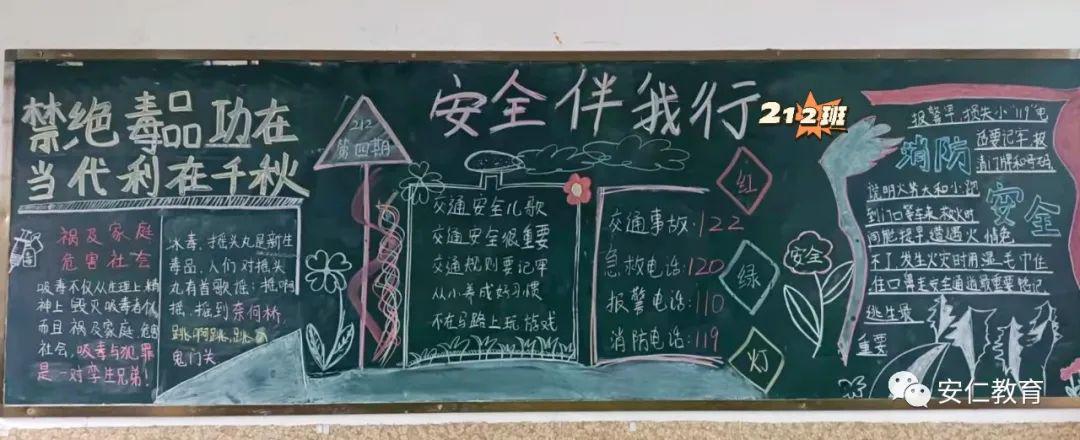 禁绝毒品 功在
当代利在千秋
祸及家庭
危害社会
吸毒不仅从生理上精
神上毁灭吸毒者
而且祸及家庭危害
社会,吸毒与犯罪
是一对孪生兄弟!
冰毒,摇头丸是新生
毒品,人们对摇头
丸有首歌摇:摇啊
摇,摇到奈何桥,
跳啊跳,跳
鬼门关
212
第四期
安全伴我行
212班
交通安全儿歌
交通安全很重要
交通规则要记牢
从小养成好习惯
不在马路上玩游戏
交通事故:122
急救电话:120
报警电话:110
消防电话:119
红
绿
灯
安全
消防
安全
报警早,损失小"119"电
还要记牢,报
清门牌和号码
说明火势大和小,迎
到门口等车来,救火时
间能提早遭遇火情危
不了 发生火灾时用湿毛巾住
住口鼻走安全通道最重要 牢记
逃生最
重要
安仁教育